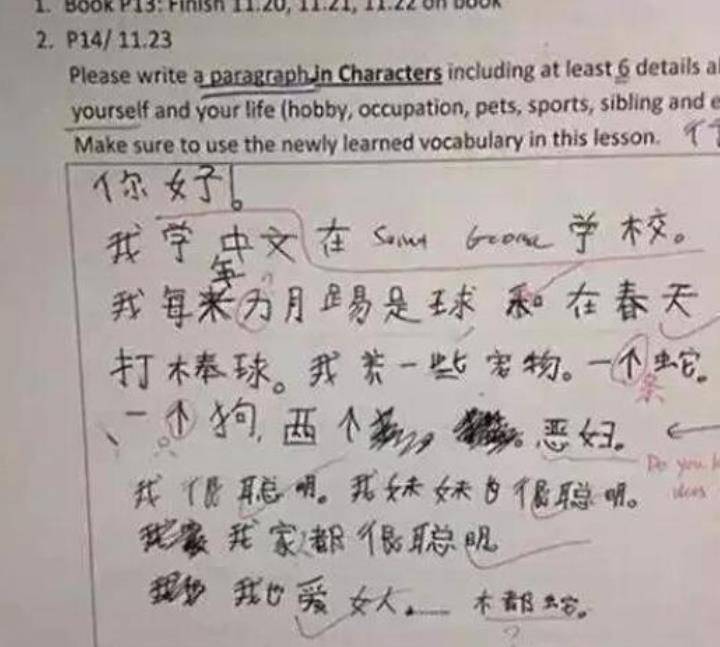 1. Book P13: Finish 11.20, 11.21, 11.22 on book
2. P14/ 11.23
Please write a paragraph in Characters including at least 6 details
yourself and your life (hobby, occupation, pets, sports, sibling and
Make sure to use the newly learned vocabulary in this lesson.
你好!
我学中文在 学校。
年
我每 为月踢是球和在春天
打棒球。我养一些宠物。一个蛇。
条
一个狗,两个 。恶妇。
Do you
我很聪明。我妹妹也很聪明。
我家都很聪明
我也爱女人。…… 木都蛇。
?